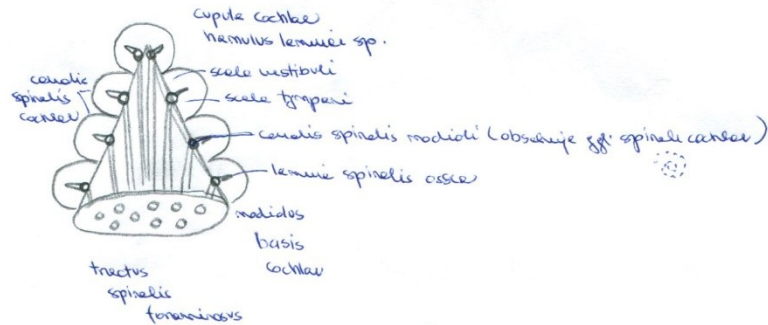 cupula cochlae
hamulus laminae sp.
scala vestibuli
canalis
spiralis
cochleae
scala tympani
canalis spiralis modioli (obsahuje ggl. spirale cochleae)
lamina spiralis ossea
modiolus
basis
cochleae
tractus
spiralis
foraminosus